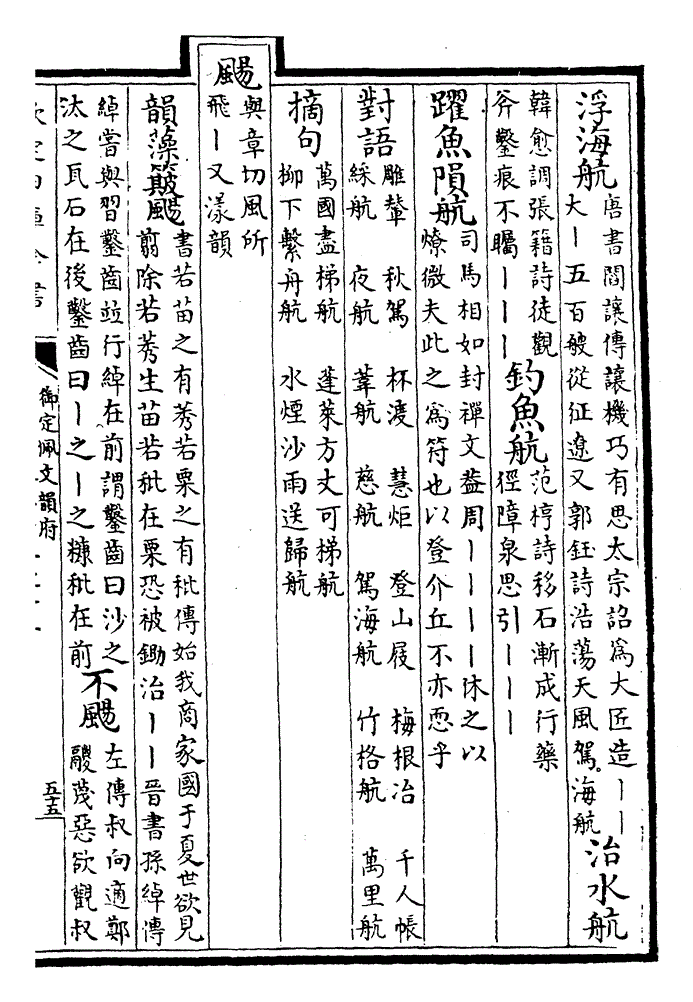 浮海航唐書閻讓傳讓機巧有思太宗詔爲大匠造丨丨
大丨五百艘從征遼又郭鈺詩浩蕩天風駕海航治水航
韓愈調張籍詩徒觀
斧鑿痕不矚丨丨丨釣魚航范梈詩移石漸成行藥
徑障泉思引丨丨丨
躍魚隕航司馬相如封禪文葢周丨丨丨丨休之以
燎微夫此之爲符也以登介丘不亦恧乎
對語雕輦 秋駕 杯渡 慧炬 登山屐 梅根冶 千人帳
綵航 夜航 葦航 慈航 駕海航 竹格航 萬里航
摘句萬國盡梯航 蓬萊方丈可梯航
柳下繫舟航 水煙沙雨送歸航
颺與章切風所
飛丨又漾韻
韻藻簸颺書若苗之有莠若粟之有秕傳始我商家國于夏世欲見
翦除若莠生苗若秕在粟恐被鋤治丨丨晉書孫綽傳
綽嘗與習鑿齒竝行綽在前謂鑿齒曰沙之
汰之瓦石在後鑿齒曰丨之丨之糠秕在前不颺左傳叔向適鄭
鬷蔑惡欲觀叔
欽定四庫全書
御定佩文韻府
五十五